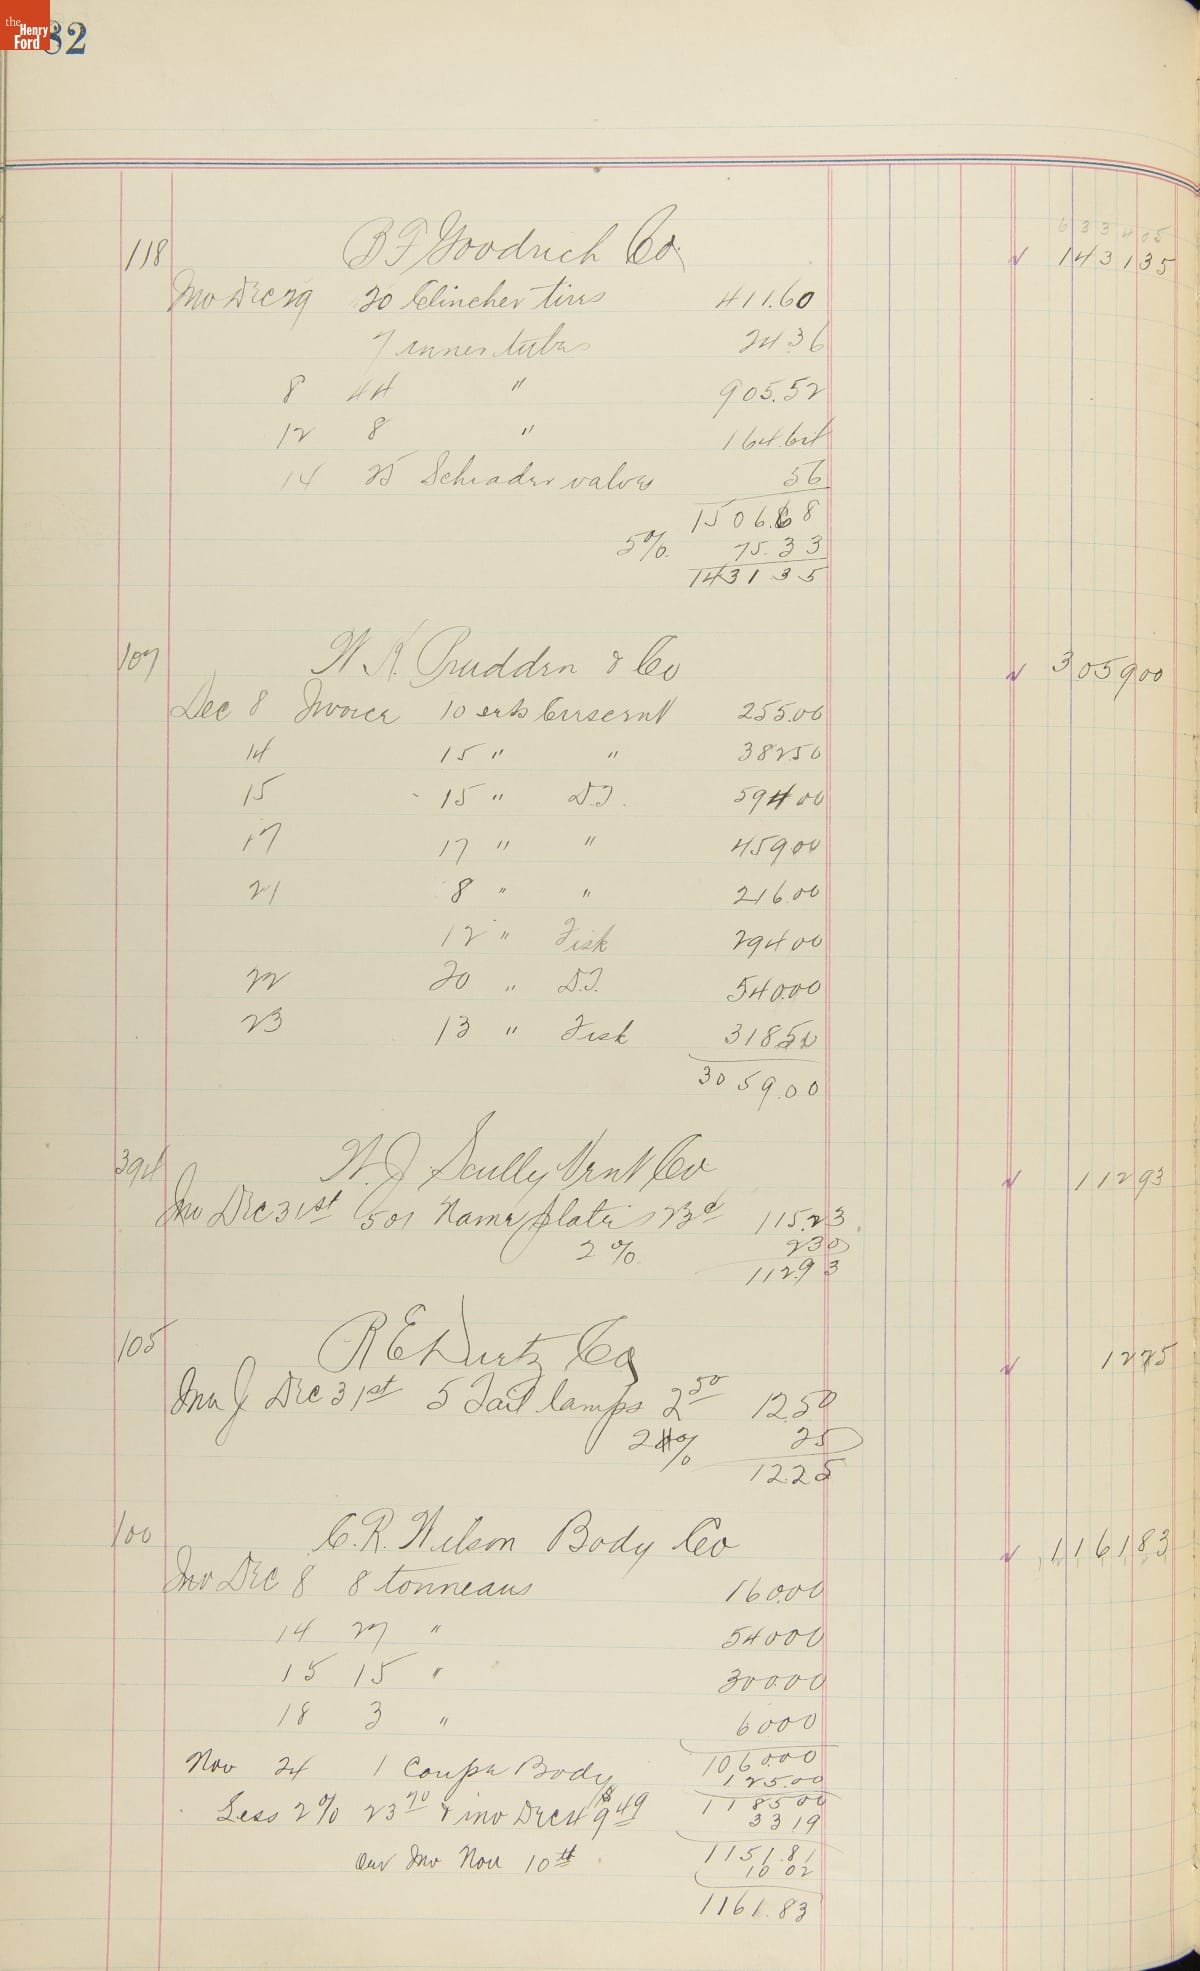 the Henry Ford
82
633405
118 B F Goodrich Co. 143135
Inv Dec 29 20 Clincher tires 411.60
7 inner tubes 24.36
8 44 " 905.52
12 8 " 164.64
14 25 Schrader valves 56
1506.68
5% 75.33
143135
107 W. K. Prudden & Co 305900
Dec 8 Invoice 10 sets 255.00
14 15 " " 38250
15 15 " D.T. 594 00
17 17 " " 459 00
21 8 " " 216.00
12 " Fisk 294 00
22 20 " D.T. 540.00
23 13 " Fisk 31850
3059.00
394 W. J. Scully Co 11293
Inv Dec 31st 501 Name plates 23¢ 115.23
2% 230
112.93
105 R E Co 1225
Inv Dec 31st 5 Tail lamps 2 50 12.50
2% 25
12.25
100 C. R. Wilson Body Co 116183
Inv Dec 8 8 tonneaus 160.00
14 27 " 54000
15 15 " 30000
18 3 " 6000
106000
Nov 24 1 Coupe Body 125.00
118500
Less 2% 23 70 & inv Dec 4 $9 49 3319
1151.81
Our Inv Nov 10th 10 02
1161.83